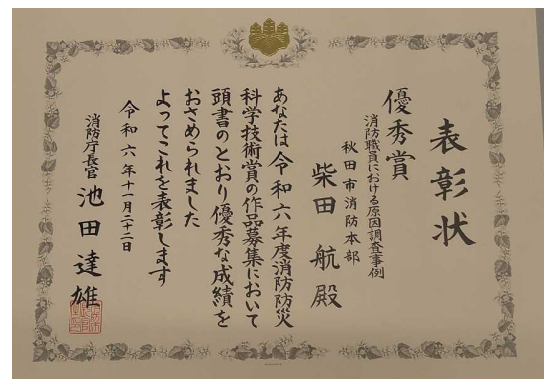 表彰状
優秀賞
消防職員における原因調査事例
秋田市消防本部
柴田 航 殿
あなたは令和六年度消防防災
科学技術賞の作品募集において
頭書のとおり優秀な成績を
おさめられました
よってこれを表彰します
令和六年十一月二十二日
消防庁長官 池田達雄